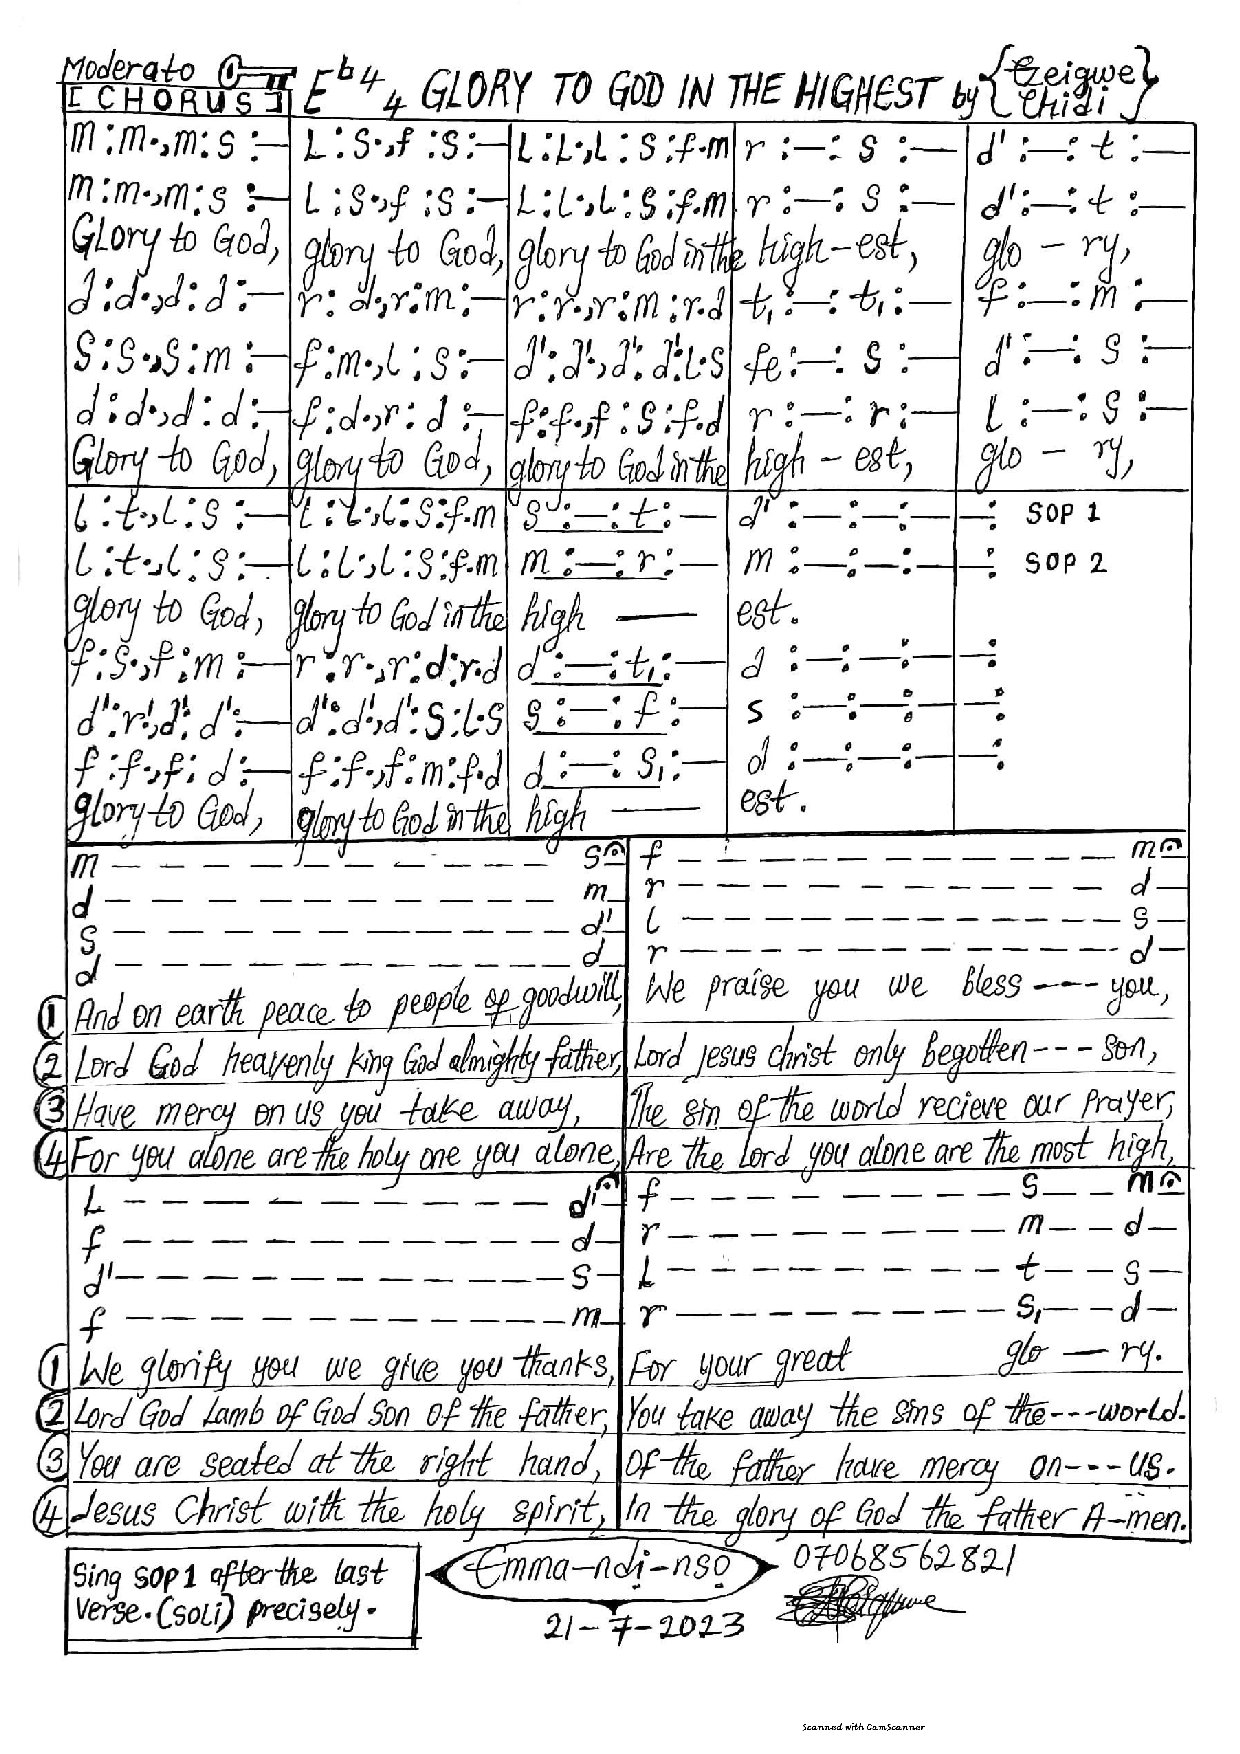 Moderato
[CHORUS] Eb 4 4 GLORY TO GOD IN THE HIGHEST by {Ezeigwe Chidi}
m:m.,m:s:— | L:s.,f:s:— | L:L.,L:s:f.m | r:—:s:— | d':—:t:—
m:m.,m:s:— | L:s.,f:s:— | L:L.,L:s:f.m | r:—:s:— | d':—:t:—
GLory to God, glory to God, glory to God in the high-est, glo - ry,
d:d.,d:d:— | r:d.,r:m:— | r:r.,r:m:r.d | t,:—:t,:— | f:—:m:—
s:s.,s:m:— | f:m.,L:s:— | d':d'.,d':d':L.s | fe:—:s:— | d':—:s:—
d:d.,d:d:— | f:d.,r:d:— | f:f.,f:s:f.d | r:—:r:— | l:—:s:—
Glory to God, glory to God, glory to God in the high - est, glo - ry,
L:t.,L:s:— | L:L.,L:s:f.m | s:—:t:— | d':—:—:— | —: SOP 1
L:t.,L:s:— | L:L.,L:s:f.m | m:—:r:— | m:—:—:— | —: SOP 2
glory to God, glory to God in the high — est.
f:s.,f:m:— | r:r.,r:d:r.d | d:—:t,:— | d:—:—:— | —:
d':r'.,d':d':— | d':d'.,d':s:L.s | s:—:f:— | s:—:—:— | —:
f:f.,f:d:— | f:f.,f:m:f.d | d:—:s,:— | d:—:—:— | —:
glory to God, glory to God in the high — est.
m — — — — — — — — — s | f — — — — — — — — — m
d — — — — — — — — — m | r — — — — — — — — — d —
s — — — — — — — — — d' | l — — — — — — — — — s —
d — — — — — — — — — d | r — — — — — — — — — d —
① And on earth peace to people of goodwill, We praise you we bless ---- you,
② Lord God heavenly king God almighty father, Lord jesus christ only begotten --- son,
③ Have mercy on us you take away, The sin of the world recieve our Prayer,
④ For you alone are the holy one you alone, Are the lord you alone are the most high,
L — — — — — — — — — d' | f — — — — — — — s — — m
f — — — — — — — — — d — | r — — — — — — — m — — d —
d' — — — — — — — — — s — | L — — — — — — — t — — s —
f — — — — — — — — — m — | r — — — — — — — s, — — d —
① We glorify you we give you thanks, For your great glo — ry.
② Lord God Lamb of God son of the father, You take away the sins of the---world.
③ You are seated at the right hand, Of the father have mercy on---us.
④ Jesus Christ with the holy spirit, In the glory of God the father A-men.
Sing SOP 1 after the last
verse. (SOLI) precisely.
Emma-ndi-nso
21-7-2023
07068562821
Scanned with CamScanner